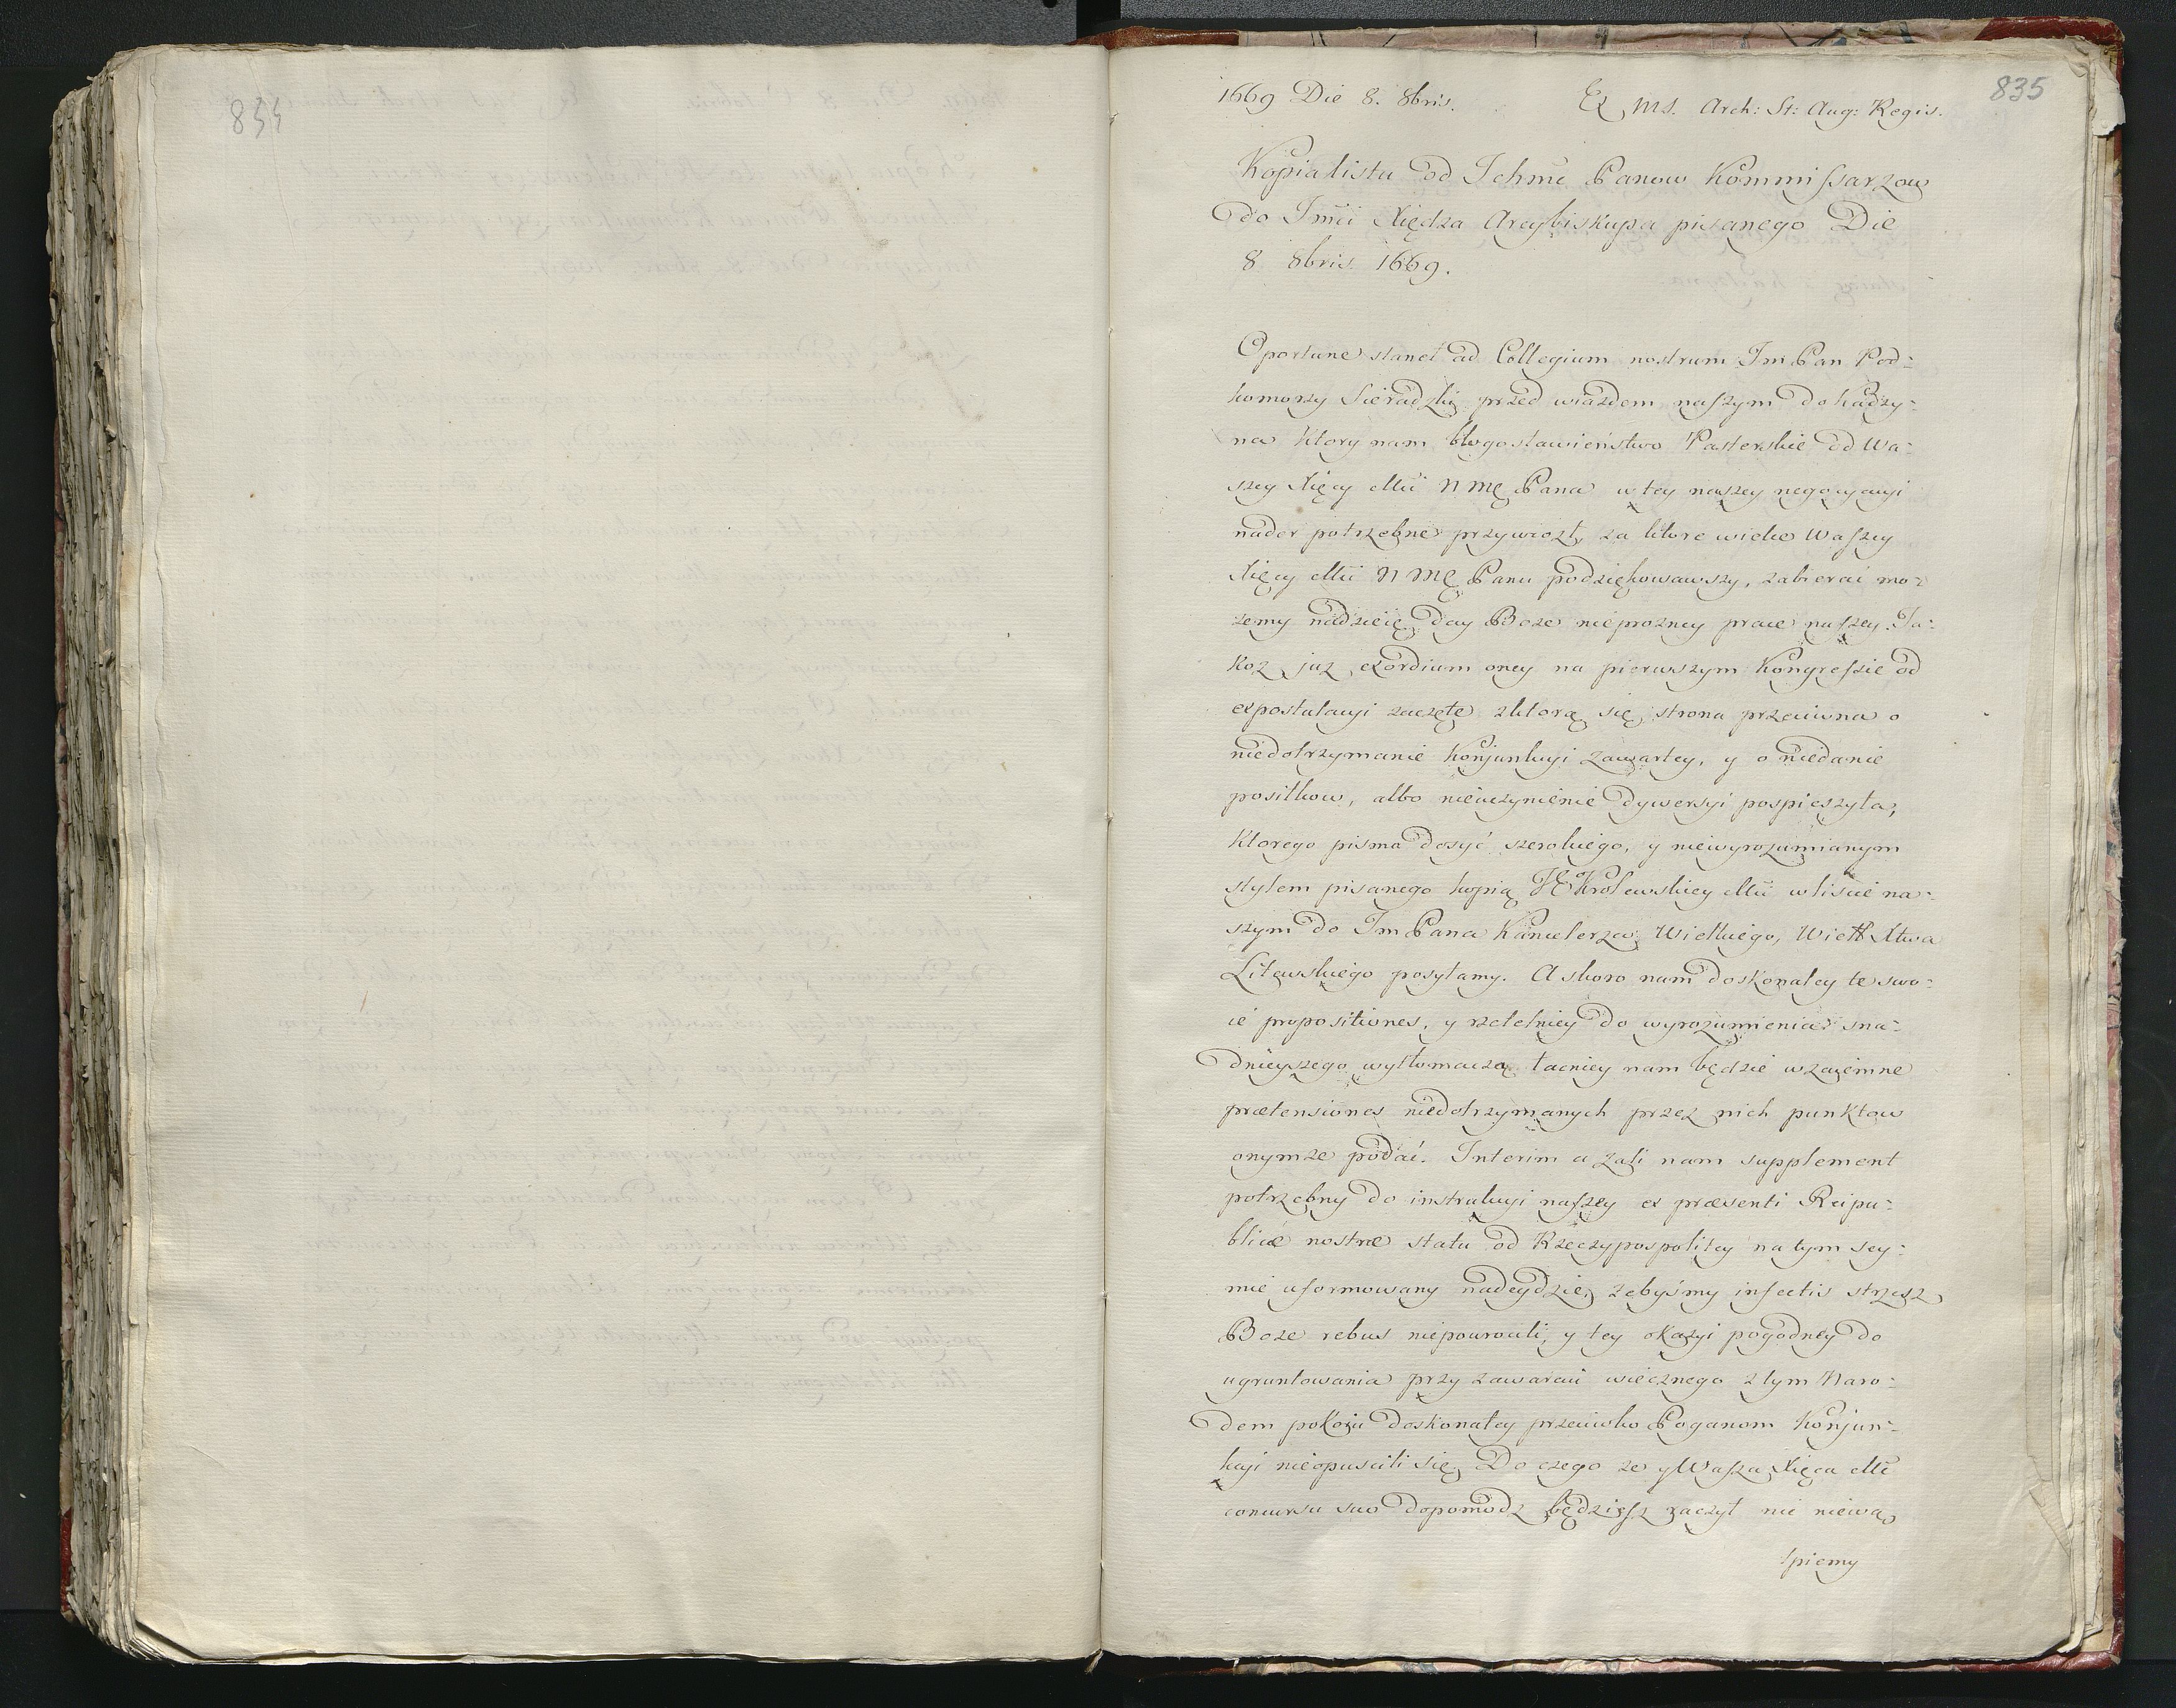 834
835
1669 Die 8. 8bris. Ex MS. Arch: St: Aug: Regis.
Kopia listu od Ichmć Panow Kommissarzow
do Imći Xiędza Arcybiskupa pisanego Die
8 8bris 1669.
Oportune stanęł ad Collegium nostrum Im Pan Pod:
komorzy Sieradzki przed wiazdem naszym do Kadzy:
na ktory nam błogosławieństwo Pasterskie od Wa:
szey Xięcy Mći N MĘ Pana w tey naszey negocyacyi
nader potrzebne przywiozł, za ktore wielce Waszey
Xięcy Mći N MĘ Panu podziękowawszy, zabierać mo:
zemy nadzieię day Boze nieprozney prace naszey. Ja:
koz juz exordium oney na pierwszym Kongressie od
expostulacyi zaczęte z ktorą się strona przeciwna o
niedotrzymanie Konjunkcyi zawartey, y o niedanie
posiłkow, albo nieuczynienie dywersyi pospieszyła,
Ktorego pisma dosyć szerokiego, y niewyrozumianym
stylem pisanego kopią JE Krolewskiey Mći w liscie na:
szym do Im Pana Kanclerza Wielkiego, Wielk Xtwa
Litewskiego posyłamy. A skoro nam doskonaley te swo:
ie propositiones, y rzetelniey do wyrozumienia sna:
dnieyszego wytłomaczą łacniey nam będzie wzaiemne
prætensiones niedotrzymanych przez nich punktow
onymze podać. Interim a zali nam supplement
potrzebny do instrukcyi naszey ex præsenti Reipu:
blicæ nostræ statu od Rzeczypospolitey na tym sey:
mie uformowany nadeydzie, zebyśmy infectis strzesz
Boze rebus niepowrocili, y tey okazyi pogodney do
ugruntowania przy zawarciu wiecznego z tym Naro:
dem pokoju doskonałey przeciwko Poganom Konjun:
kcyi nieopuscili się. Do czego ze y Wasza Xięca Mć
concursu suo dopomodz będziesz raczył nic niewą
tpiemy